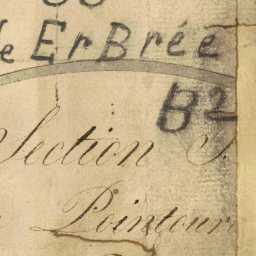 de Er Brée
B2
Section
Pointour